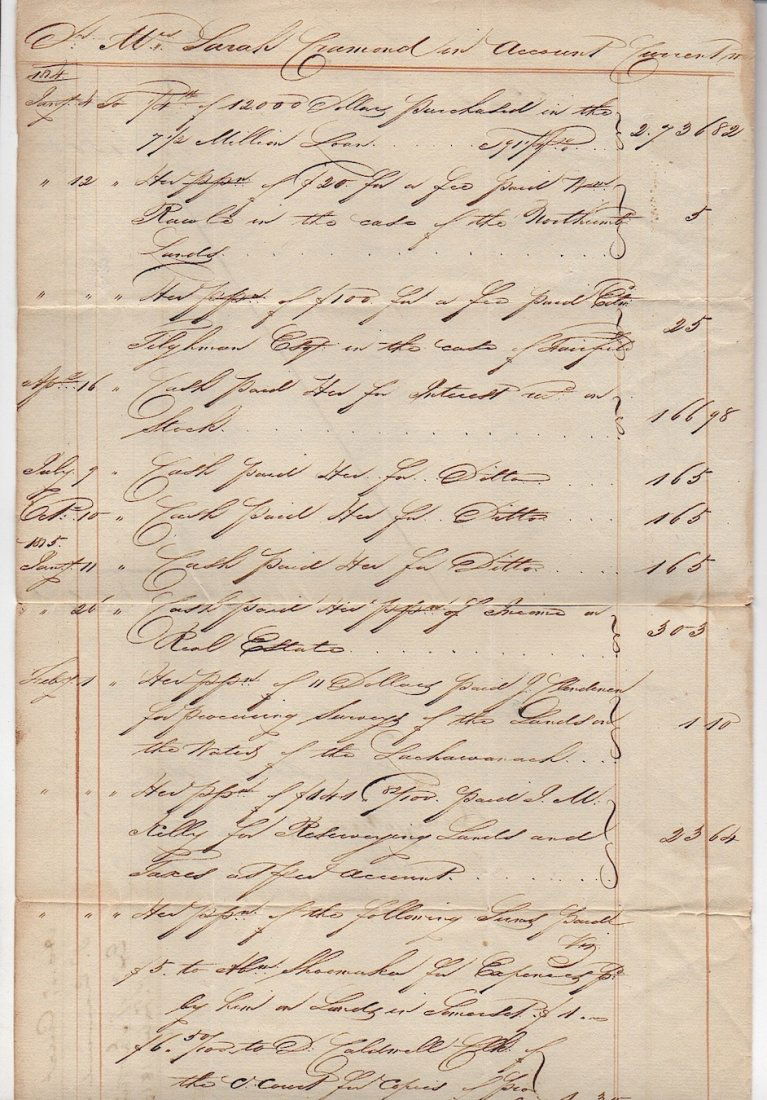 Dr. Mrs. Sarah Cramond in Account Current
1814
Jany. 4 To 1/4th of 12000 Dollars purchased in the
7 1/2 Million Loan 2.736 82
" 12 " Her ppn. of $20. for a fee paid Wm.
Rawle in the case of the Northumb.
Lands 5
" " " Her ppn. of $100. for a fee paid Edw.
Tilghman Esqr. in the case of Fairfield 25
Apr. 16 " Cash paid Her for Interest recd. on
Stock 166 98
July 9 " Cash paid Her for Ditto 165
Oct. 10 " Cash paid Her for Ditto 165
1815.
Jany. 11 " Cash paid Her for Ditto 165
" 26 " Cash paid Her ppn. of Income on
Real Estate 303
Feby. 1 " Her ppn. of 11 Dollars paid J.
for procuring Surveys of the Lands on
the Waters of the Lachawanach 1 10
" " " Her ppn. of $141 82/100 paid J. M.
for Resurveying Lands and
Taxes as per Account 23 64
" " " Her ppn. of the following Sums paid
Viz
$5. to Abm. Shoemaker for Expenses pd.
by him on Lands in Somerset. $1.
$6. 50/100 to D. Caldwell Clk. of
the C. Court for Copies of